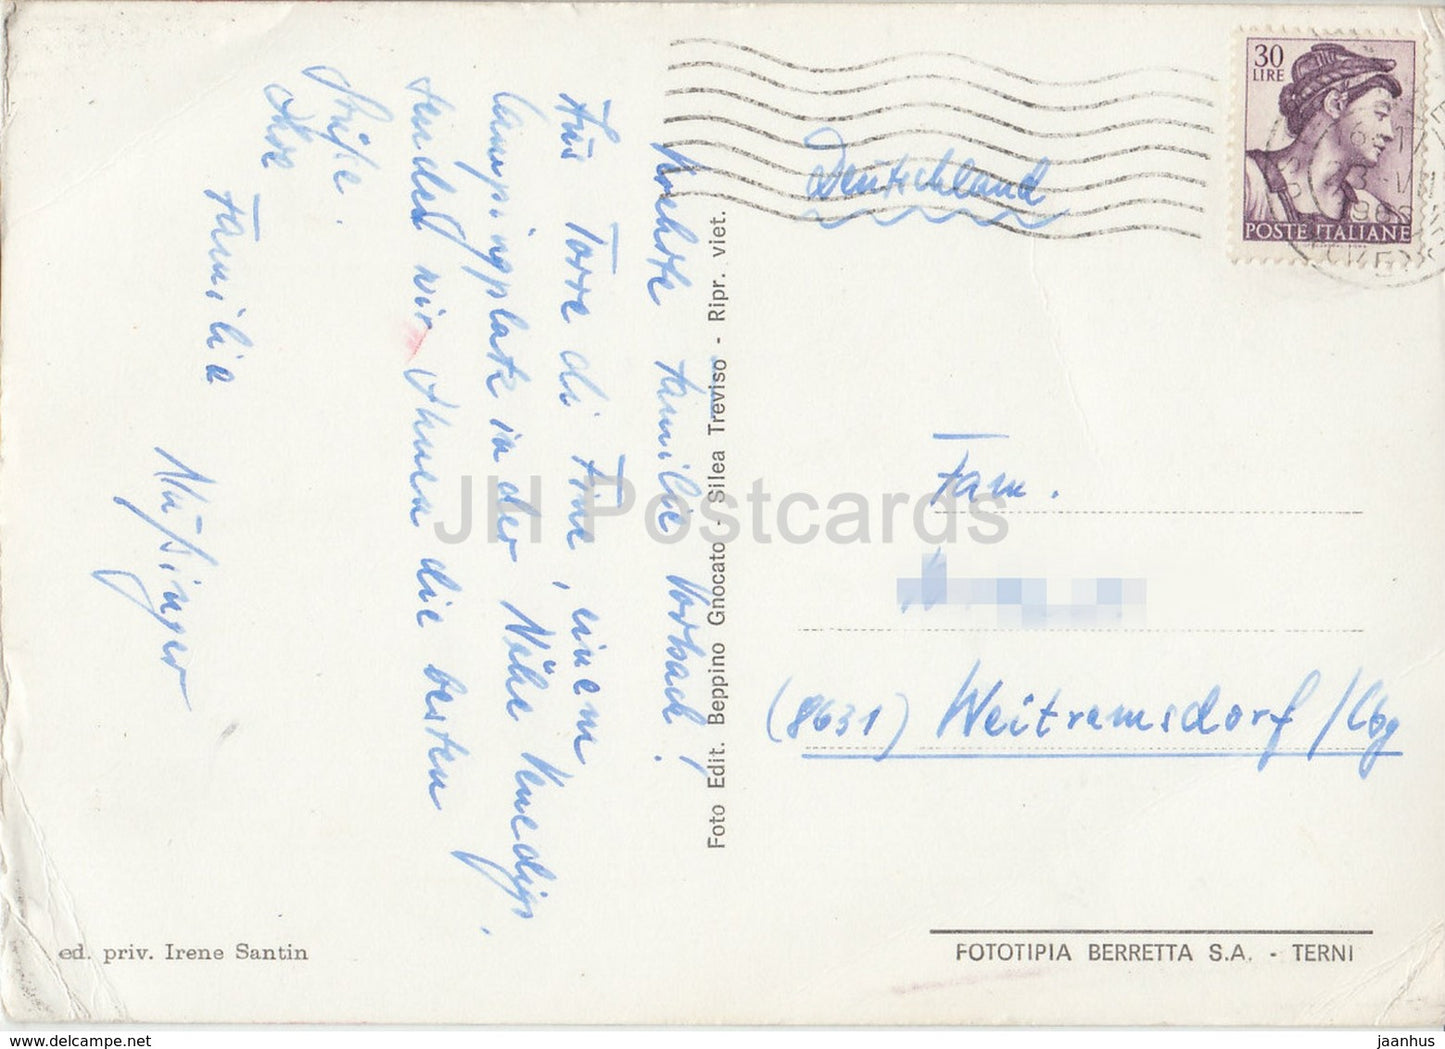 30
LIRE
POSTE ITALIANE
Deutschland
Familie
Aus Torre di Fine, einem
Campingplatz in der Nähe Venedigs,
senden wir Ihnen die besten
Grüße.
Ihre
Familie
Foto Edit. Beppino Gnocato - Silea Treviso - Ripr. viet.
Fam.
(8631) Weitramsdorf/Cbg
ed. priv. Irene Santin
FOTOTIPIA BERRETTA S.A. - TERNI
JH Postcards
www.delcampe.net
jaanhus